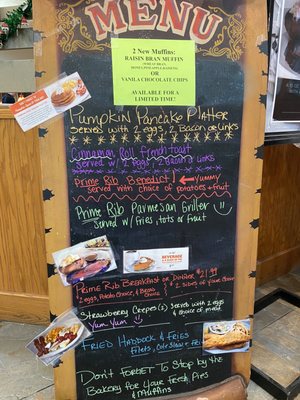 MENU
2 New Muffins:
RAISIN BRAN MUFFIN
OR
VANILLA CHOCOLATE CHIPS
AVAILABLE FOR A
LIMITED TIME!
Pumpkin Pancake Platter
Serves with 2 eggs, 2 Bacon or Links
Cinnamon Roll French toast
Served w/ 2 eggs, 2 Bacon or Links
Prime Rib Benedict! ← Yummy
served with choice of potatoes + fruit
Prime Rib Parmesan Griller
Served w/ fries, tots or fruit
BEVERAGE
Prime Rib Breakfast or Dinner $21.99
2 eggs, Potato Choice, & Bread
2 Sides of your Choice
Strawberry Crepes(s) Served with 2 eggs
Yum Yum & choice of Meat
Fried Haddock & Fries
Filets, Cole Slaw + Fries
Don't Forget To Stop by the
Bakery for your Bread, Pies
& Muffins